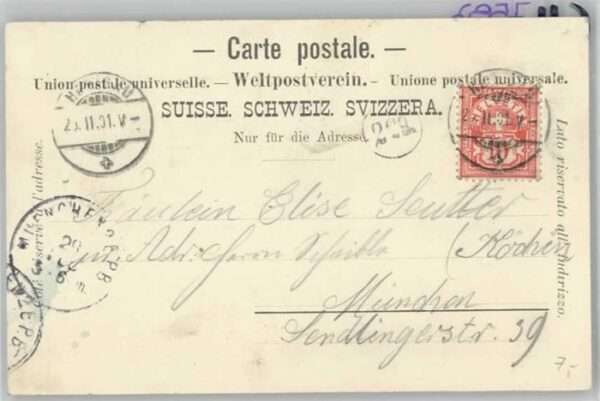 — Carte postale. —
Union postale universelle. — Weltpostverein. — Unione postale universale.
SUISSE. SCHWEIZ. SVIZZERA.
Nur für die Adresse.
l'adresse.
Lato riservato all'indirizzo.
II.91.V
II.91.V
10
Fräulein Elise Seutter
Adr. Herrn Schaible (Köchin)
München
Sendlingerstr. 39
MUENCHEN
7,-